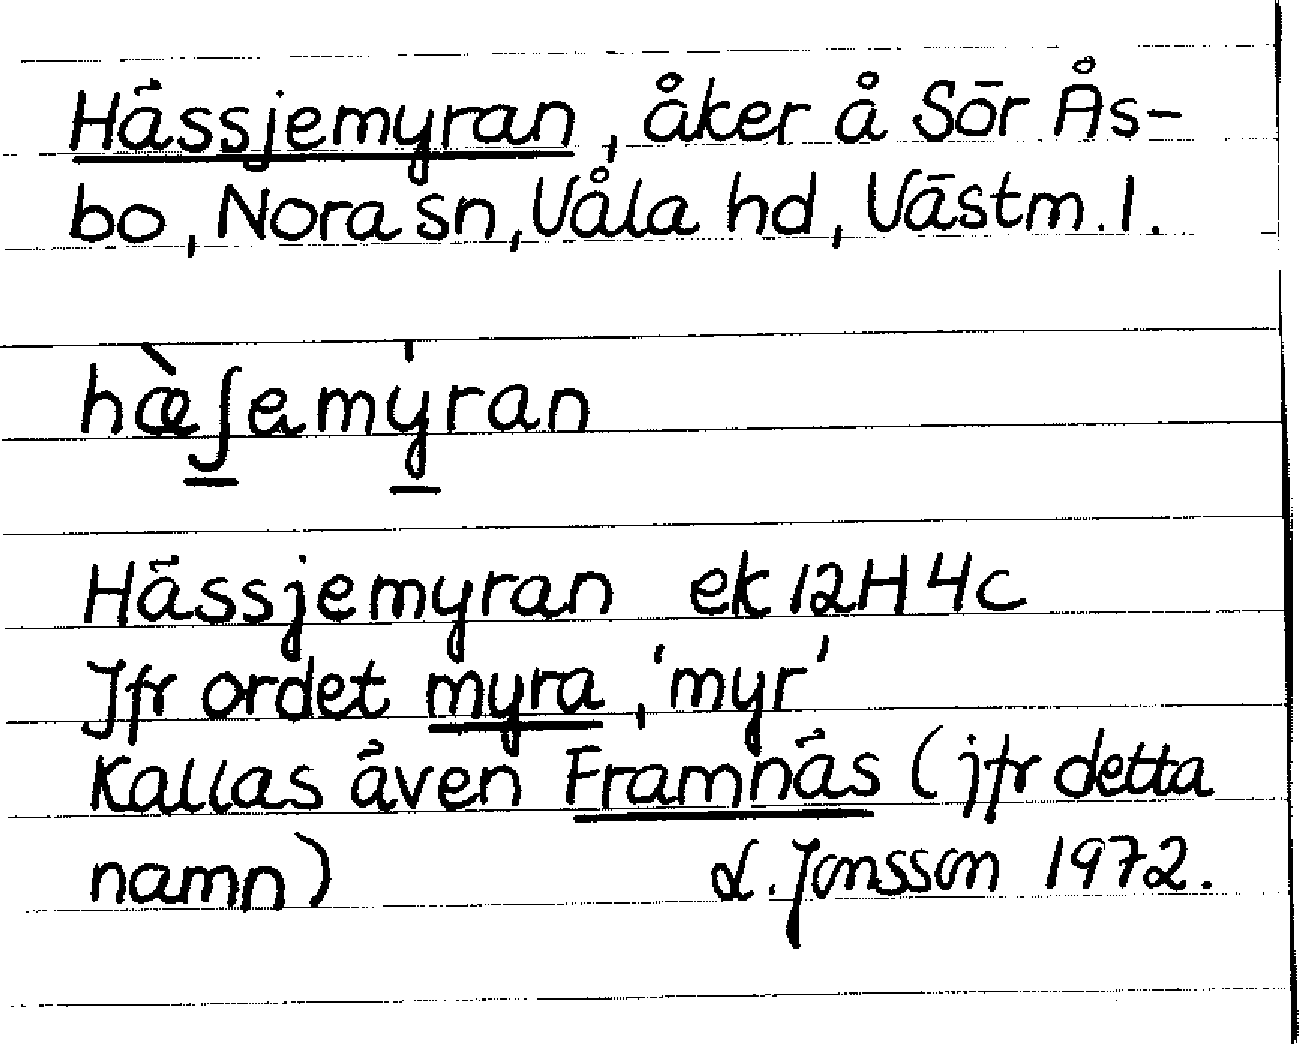 Hässjemyran, åker å Sör Ås-
bo, Nora sn, Våla hd, Västm. l.
hæ̀ʃemy̍ran
Hässjemyran ek 12H 4c
Jfr ordet myra, 'myr'
Kallas även Framnäs (jfr detta
namn) L. Jonsson 1972.